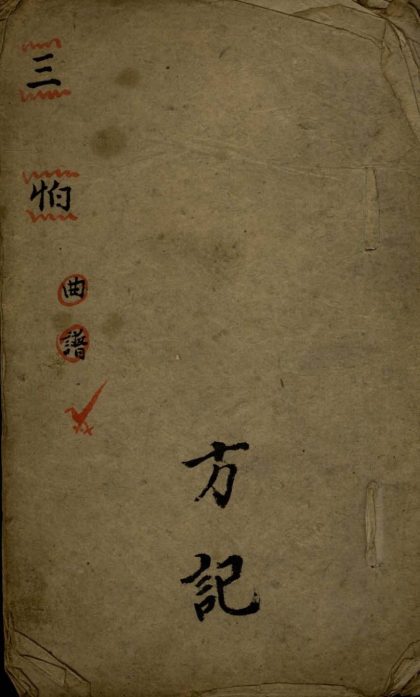 三怕
曲譜
方記